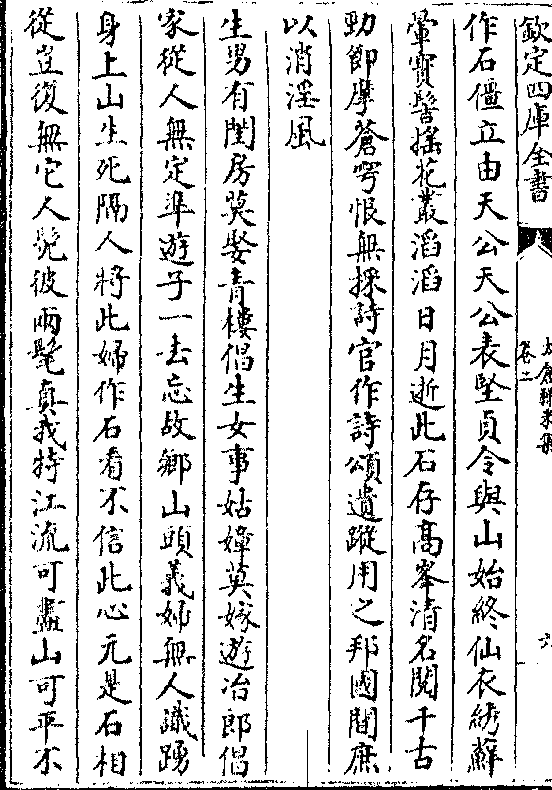 欽定四庫全書
太倉稊米集
卷二
六
作石僵立由天公天公表堅貞令與山始終仙衣綉蘚
暈寳髻揺花叢滔滔日月逝此石存髙峯清名閱千古
勁節摩蒼穹恨無採詩官作詩頌遺蹤用之邦國間庶
以消淫風
生男有閨房莫娶青樓倡生女事姑嫜莫嫁遊冶郎倡
家從人無定凖遊子一去忘故鄉山頭義婦無人識踴
身上山生死隔人將此婦作石看不信此心元是石相
從豈復無它人髧彼兩髦真我特江流可盡山可平不